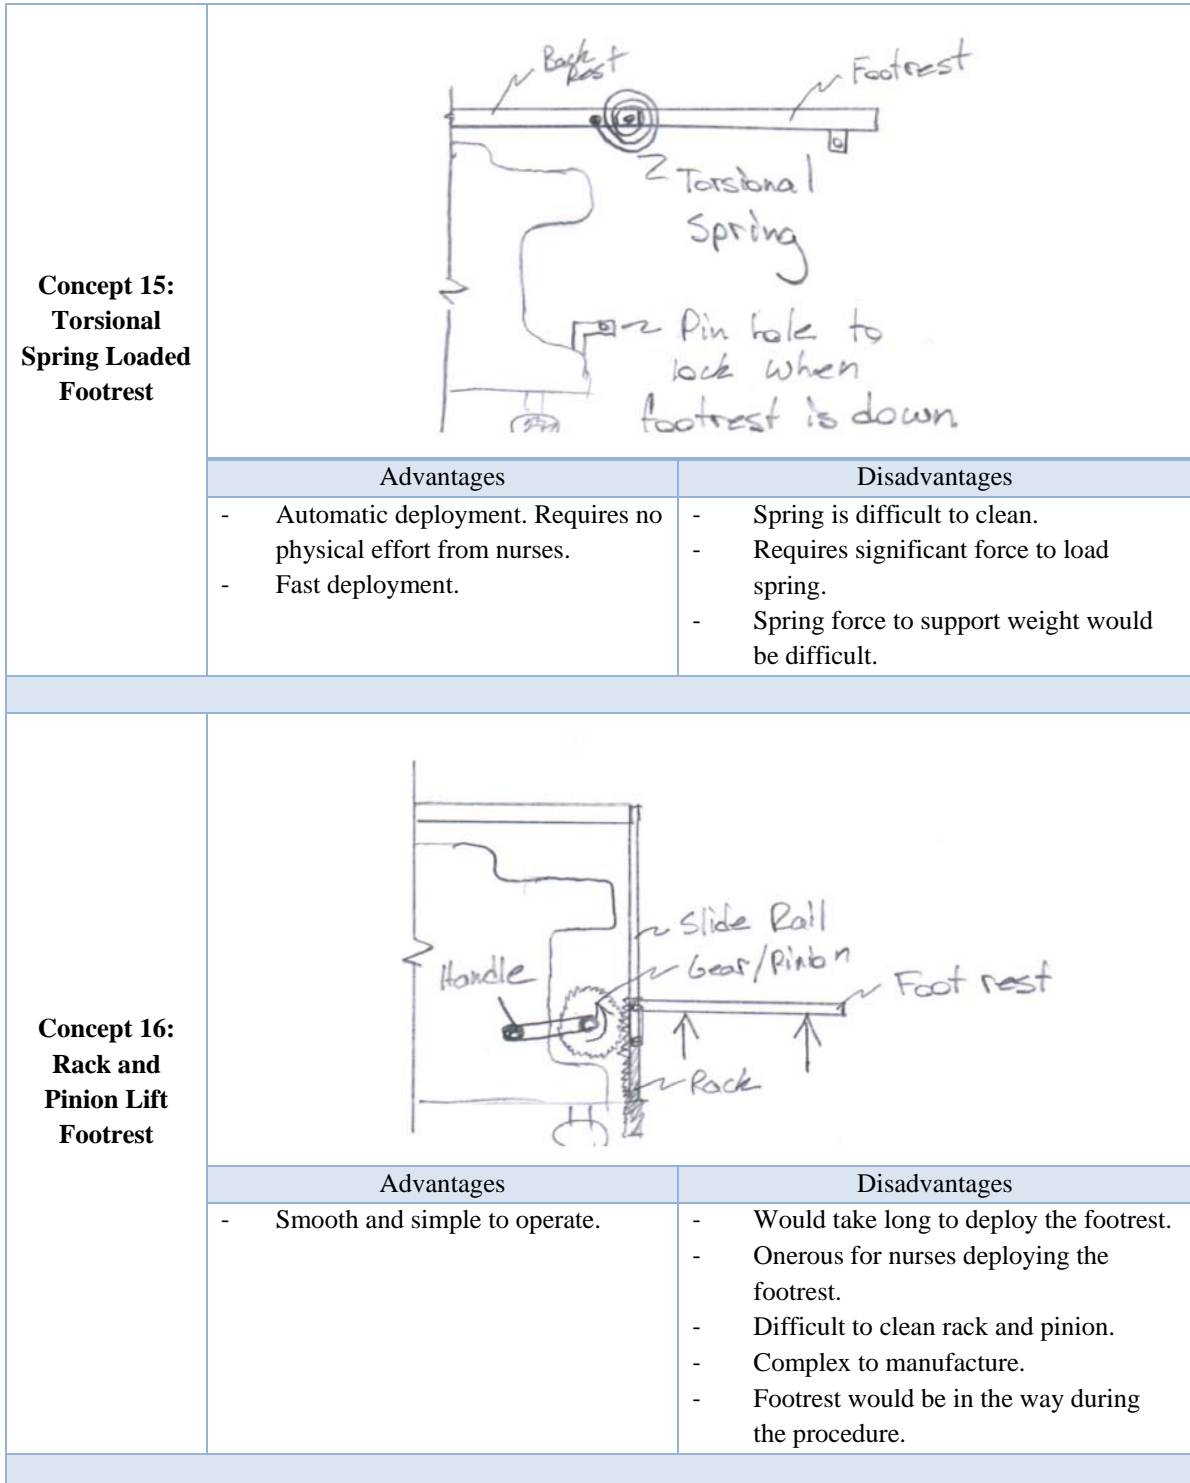 Back
Rest
Footrest
Torsional
Spring
Pin hole to
lock when
footrest is down.
Concept 15:
Torsional
Spring Loaded
Footrest
Advantages
Disadvantages
- Automatic deployment. Requires no
physical effort from nurses.
- Fast deployment.
- Spring is difficult to clean.
- Requires significant force to load
spring.
- Spring force to support weight would
be difficult.
Slide Rail
Gear/Pinion
Handle
Foot rest
Rack
Concept 16:
Rack and
Pinion Lift
Footrest
Advantages
Disadvantages
- Smooth and simple to operate.
- Would take long to deploy the footrest.
- Onerous for nurses deploying the
footrest.
- Difficult to clean rack and pinion.
- Complex to manufacture.
- Footrest would be in the way during
the procedure.